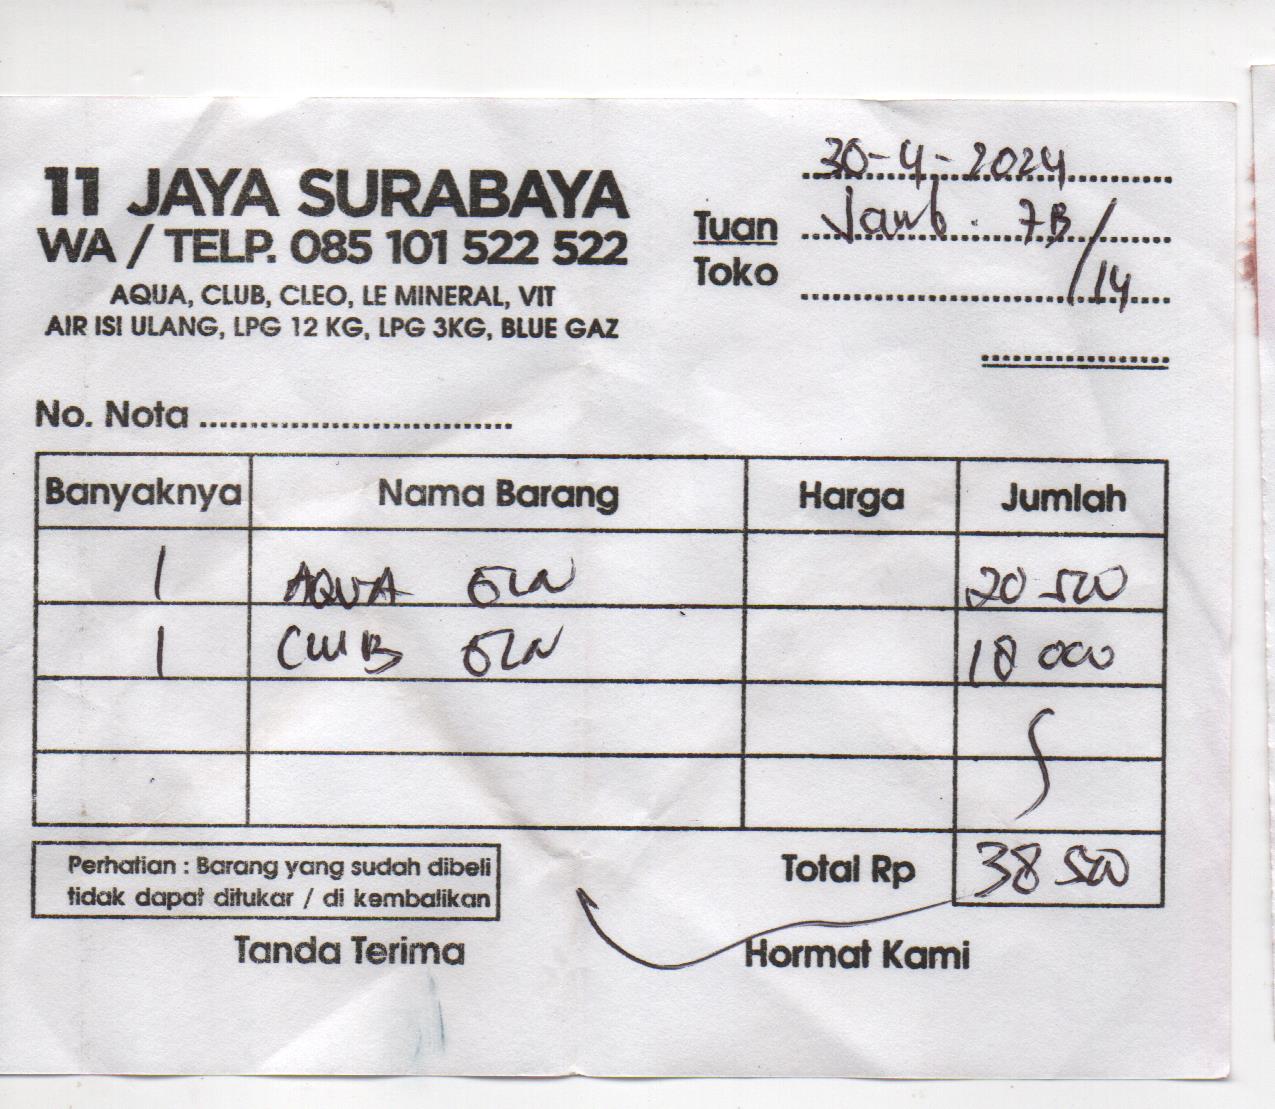 11 JAYA SURABAYA
WA / TELP. 085 101 522 522
AQUA, CLUB, CLEO, LE MINERAL, VIT
AIR ISI ULANG, LPG 12 KG, LPG 3KG, BLUE GAZ
30-4-2024
Tuan Jamb. 7B/14
Toko
No. Nota
Banyaknya Nama Barang Harga Jumlah
1 AQUA GLN 20 500
1 CLUB GLN 18 000
Total Rp 38 500
Perhatian : Barang yang sudah dibeli
tidak dapat ditukar / di kembalikan
Tanda Terima Hormat Kami